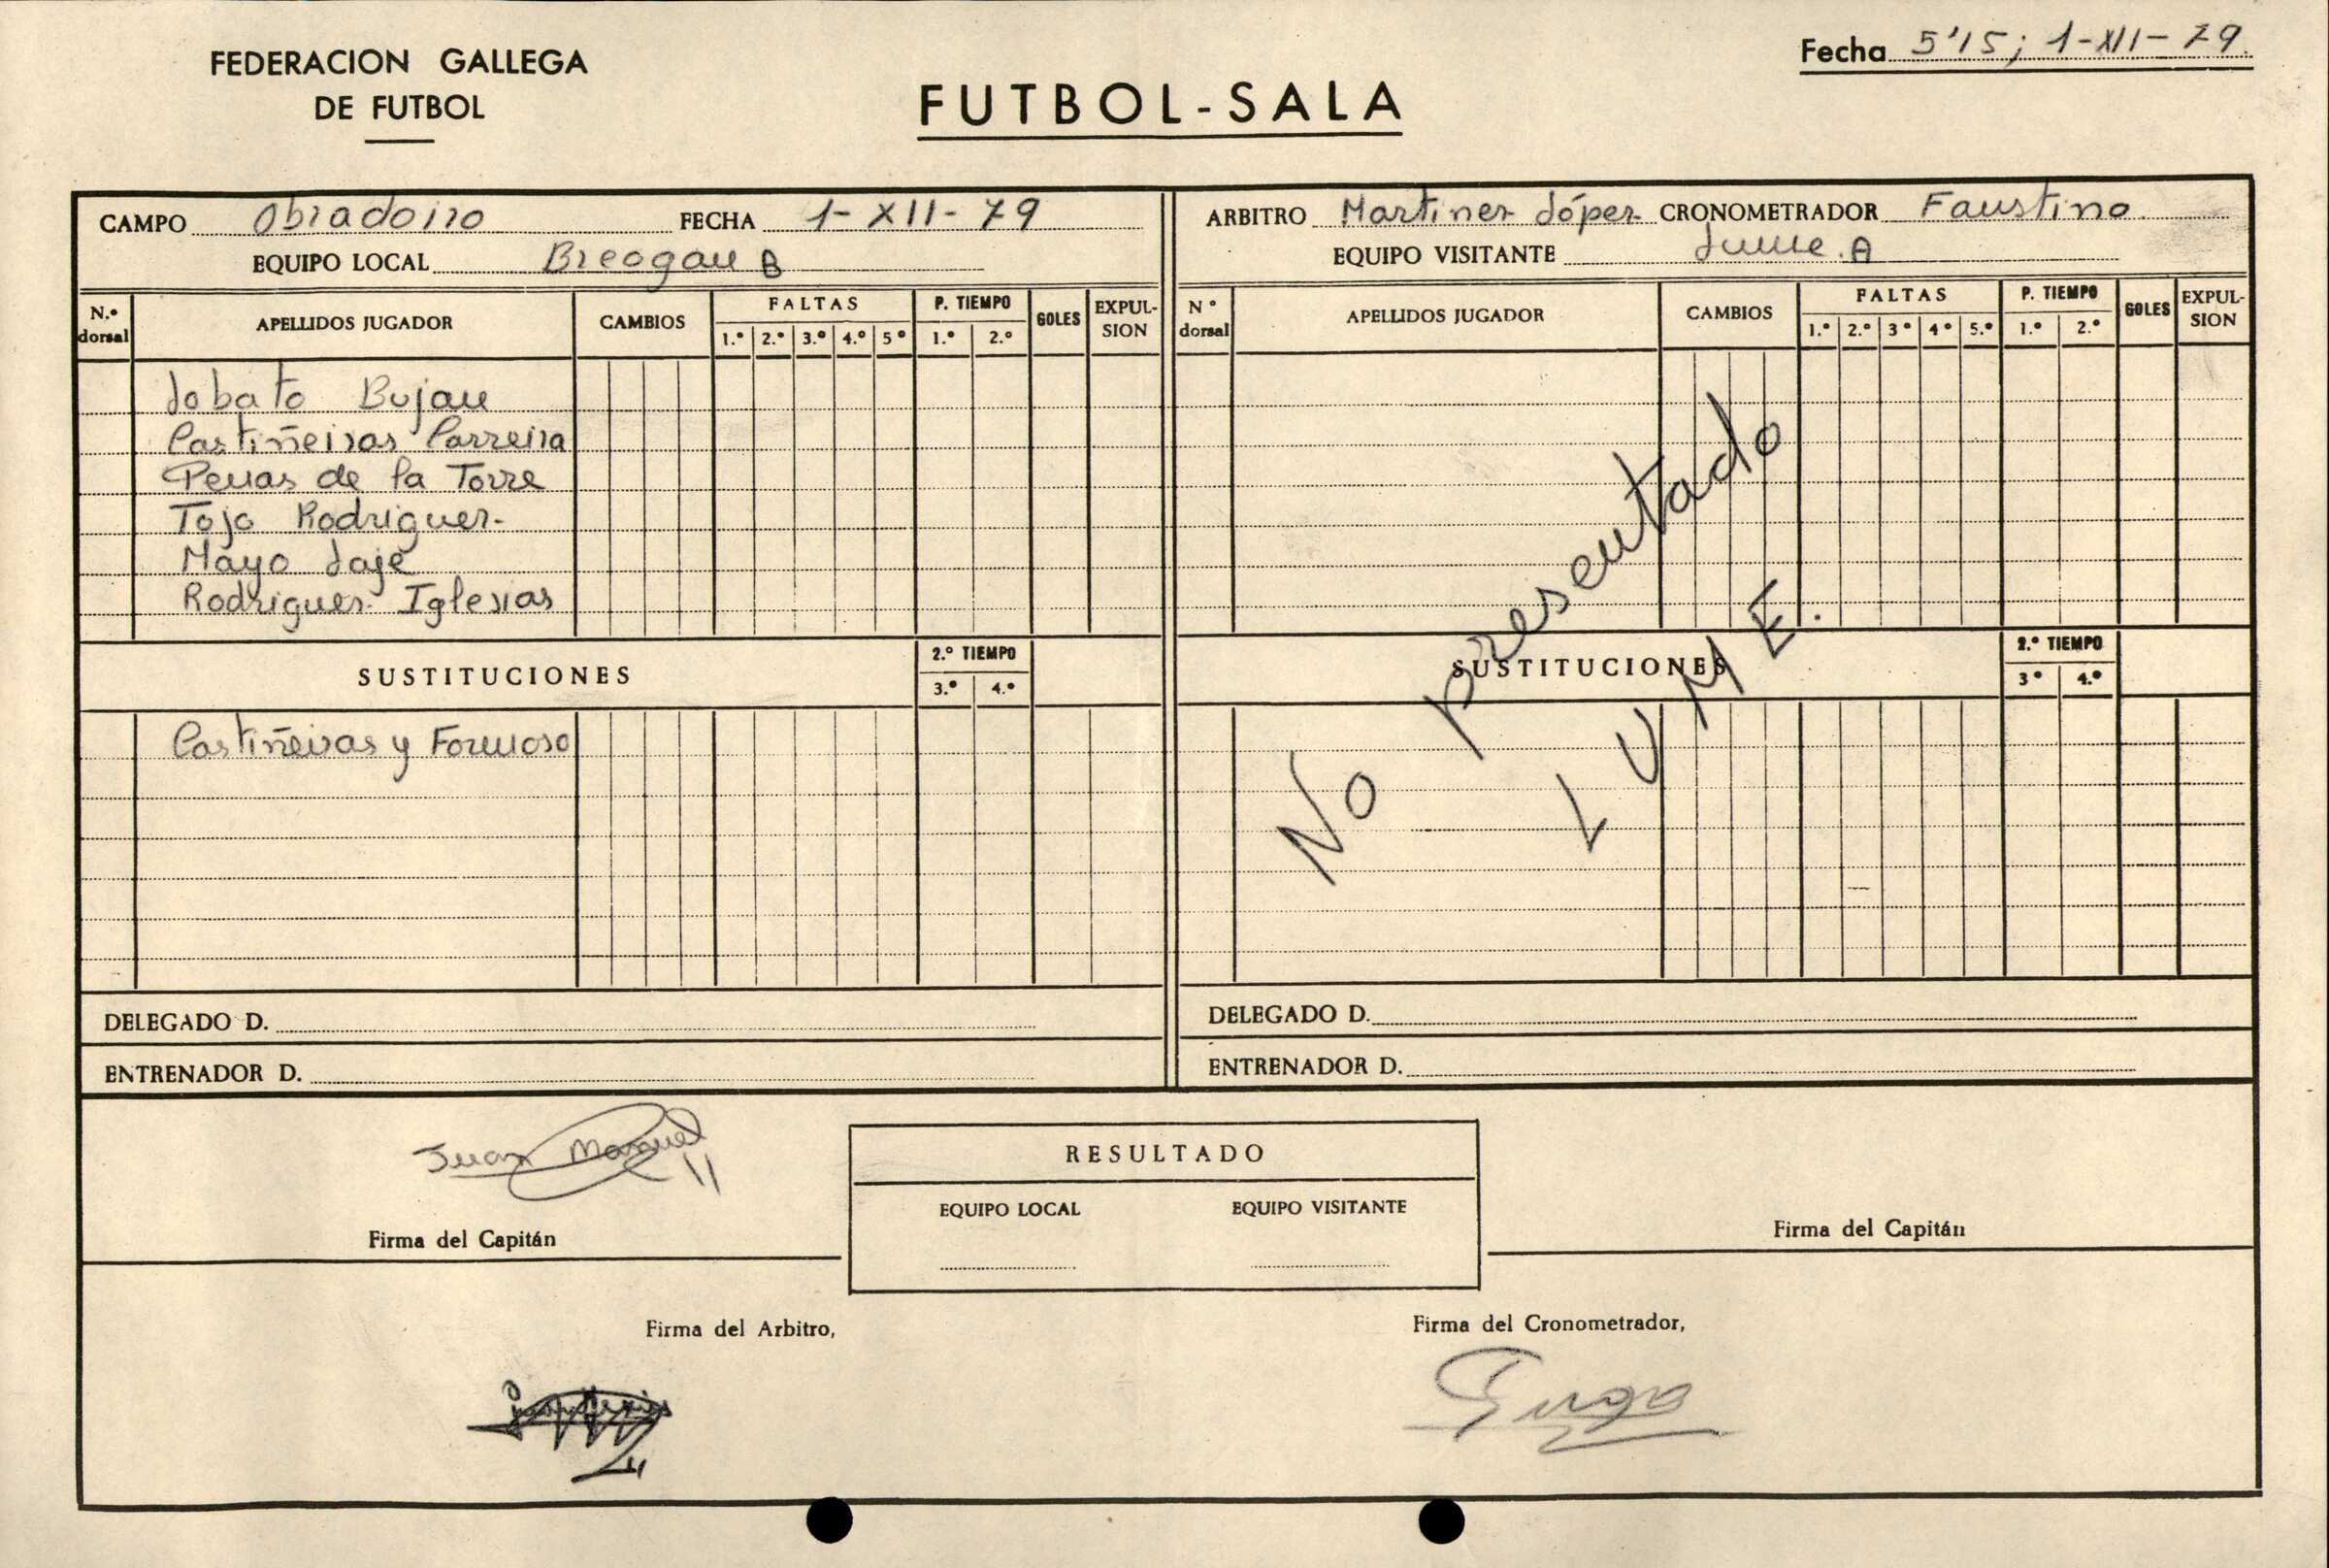 FEDERACION GALLEGA
DE FUTBOL
FUTBOL-SALA
Fecha 5'15; 1-XII-79
CAMPO Obradoiro FECHA 1-XII-79
EQUIPO LOCAL Breogan B
N.º dorsal APELLIDOS JUGADOR CAMBIOS FALTAS 1.º 2.º 3.º 4.º 5º P. TIEMPO 1.º 2.º GOLES EXPUL-SION
Lobato Bujan
Castiñeiras Carreira
Penas de la Torre
Tojo Rodriguez
Mayo Laje
Rodriguez Iglesias
SUSTITUCIONES 2.º TIEMPO 3.º 4.º
Castiñeiras y Formoso
DELEGADO D.
ENTRENADOR D.
ARBITRO Martinez López CRONOMETRADOR Faustino
EQUIPO VISITANTE Lume. A
Nº dorsal APELLIDOS JUGADOR CAMBIOS FALTAS 1.º 2.º 3º 4º 5.º P. TIEMPO 1.º 2.º GOLES EXPUL-SION
No presentado
LUME.
SUSTITUCIONES 2.º TIEMPO 3º 4.º
DELEGADO D.
ENTRENADOR D.
Juan Manuel
Firma del Capitán
RESULTADO
EQUIPO LOCAL EQUIPO VISITANTE
Firma del Capitán
Firma del Arbitro,
Firma del Cronometrador,